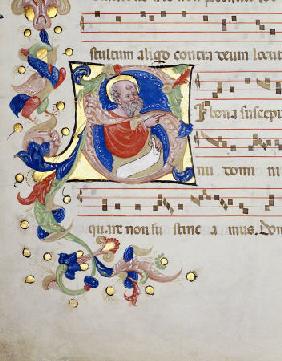 stultum aliqd contra deum locut
SI bona suscepi
nu domi ni
quare non su stine a mus. Do